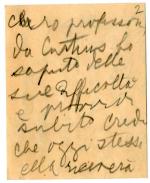 2
Caro professore,
da Instruns ho
saputo delle
sue difficoltà
e provvedo
subito. Credo
che oggi stesso
ella riceverà